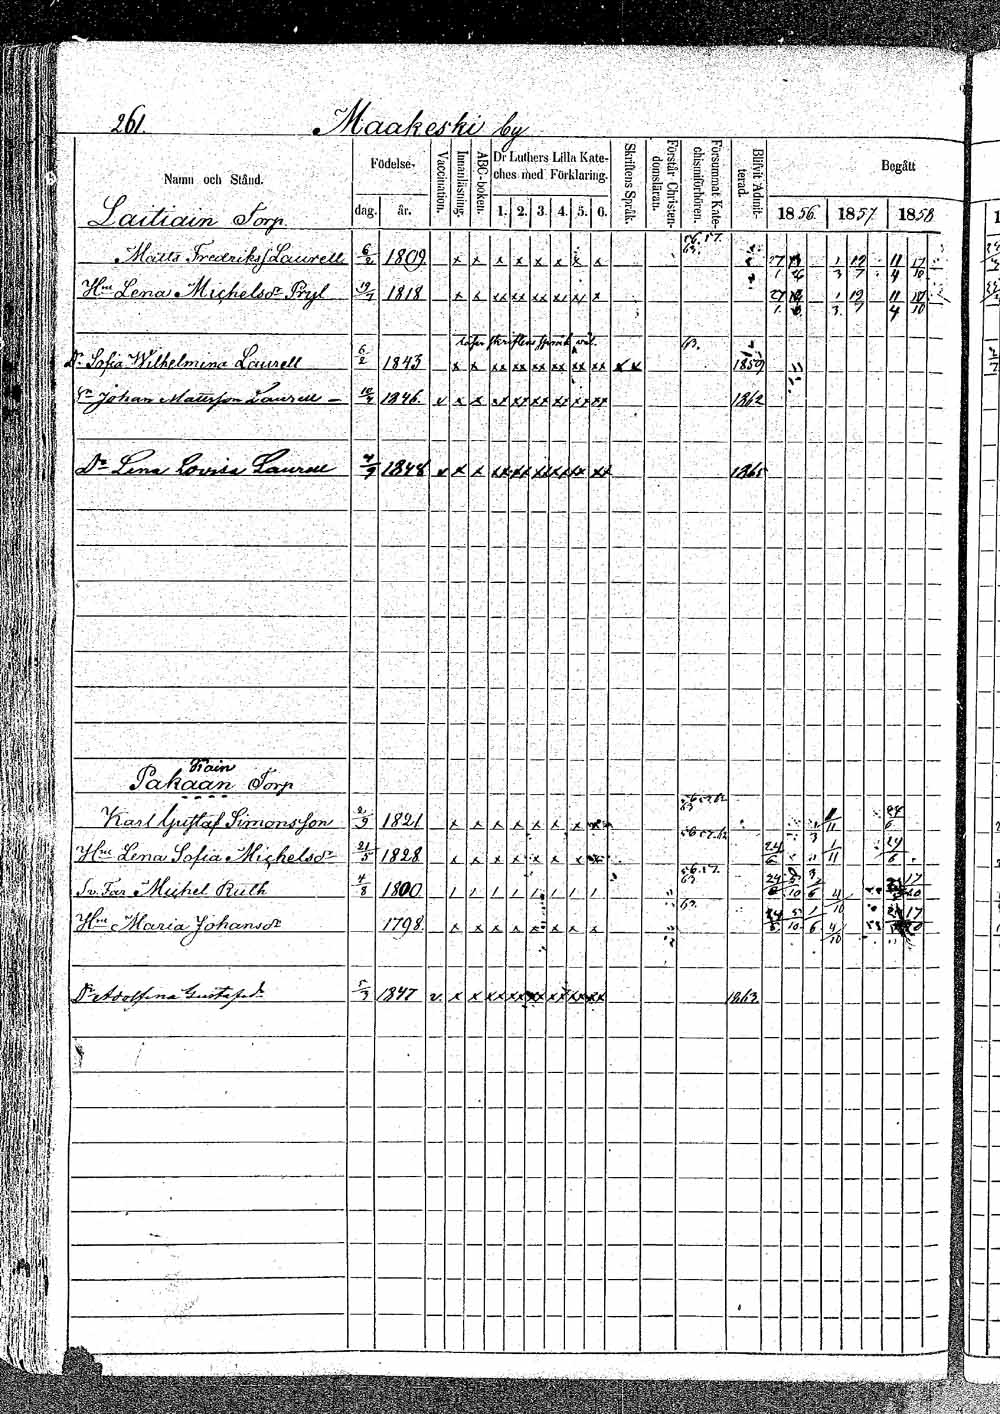 261. Maakeski by
Namn och Stånd. Födelse- dag. år. Vaccination. Innanläsning. ABC-boken. Dr Luthers Lilla Kateches med Förklaring. 1. 2. 3. 4. 5. 6. Skriftens Språk. Förstår Christendomsläran. Försummat Katechismiförhören. Blifvit Admitterad. Begått 1856. 1857 1858
Laitiain Torp.
56.57. 63.
Matts Fredriksson Laurell 6/2 1809 x x x x x x x x 1/3 19/7 11/4 17/10
Hu Lena Michelsdr Pryl 19/7 1818 x x xx xx xx xx xx x 1/3 19/7 11/4 17/10
63.
Dr Sofia Wilhelmina Laurell 6/2 1843 x x xx xx xx xx xx xx x x 1859
Sn Johan Mattsson Laurell 10/3 1846. v x x xx xx xx xx xx xx 1862
Dr Lena Lovisa Laurell 4/9 1848 v x x xx xx xx xx xx xx 1865
Rain
Pakaan Torp
56.57.62 63
Karl Gustaf Simonsson 2/9 1821 x x x x x x x x 24/6
56.57.62
Hu Lena Sofia Michelsdr 21/5 1828 x x x x x x x x 24/6 1/11 24/6
56.57. 63
Sv. Far Michel Ruth 4/8 1800 / / / / / / / /
63.
Hu Maria Johansdr 1798. x x x x x x x x
Dr Adolfina Gustafsd. 5/3 1847 v. x x xx xx xx xx xx xx 1863